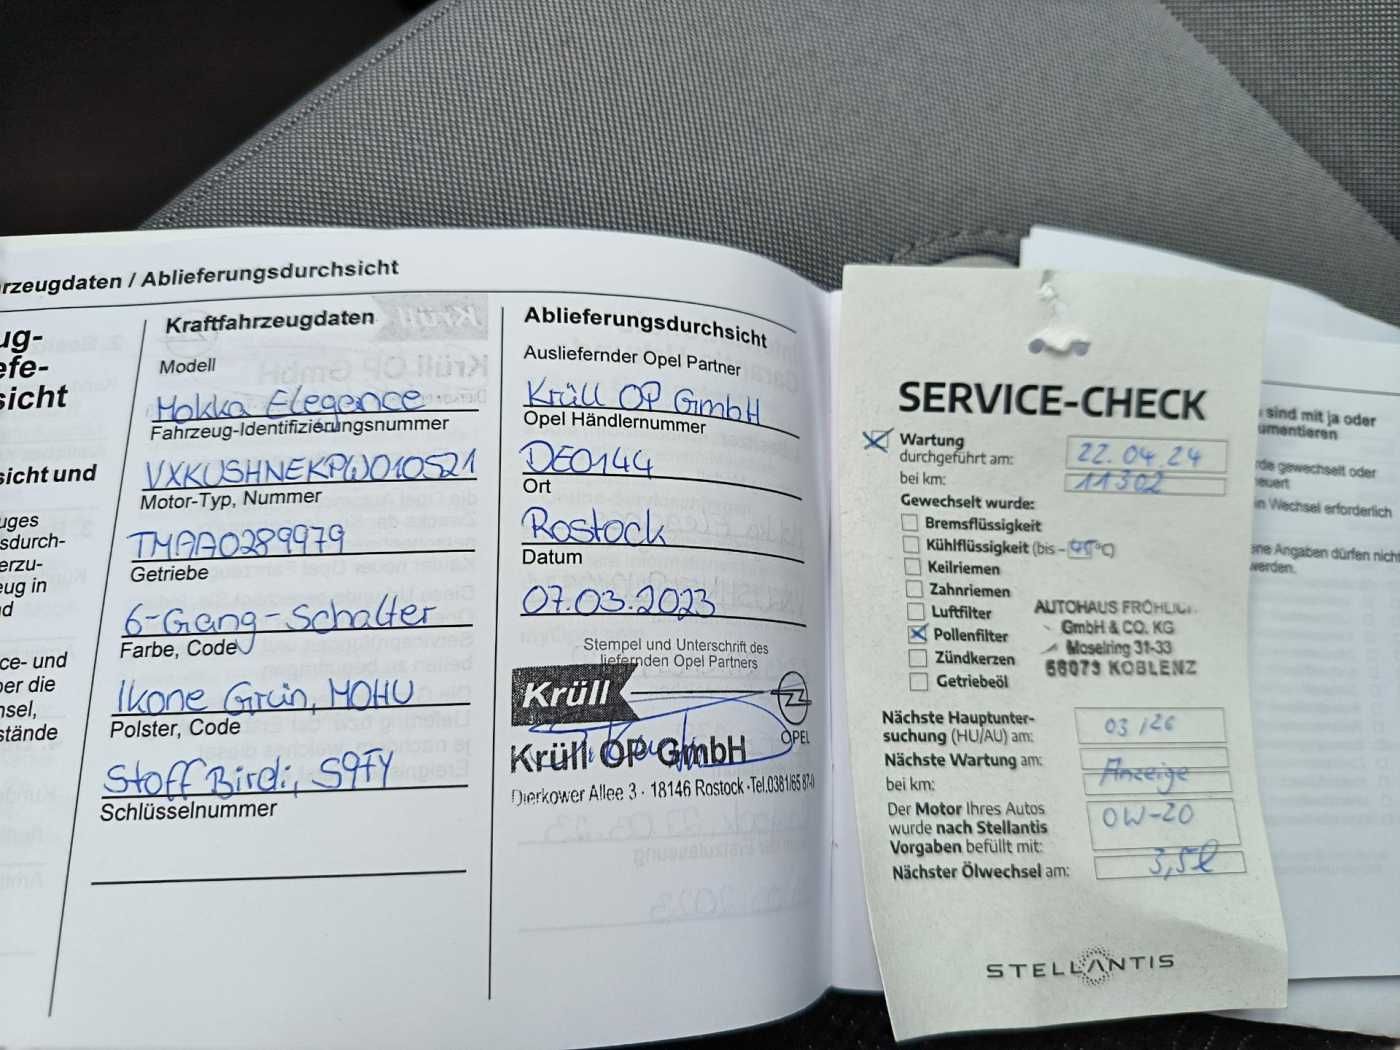 rzeugdaten / Ablieferungsdurchsicht
ug-
efe-
sicht
sicht und
uges
sdurch-
erzu-
eug in
d
ce- und
ber die
hsel,
stände
Kraftfahrzeugdaten
Modell
Mokka Elegance
Fahrzeug-Identifizierungsnummer
VXKUSHNEKPW010521
Motor-Typ, Nummer
TMAA0289979
Getriebe
6-Gang-Schalter
Farbe, Code
Ikone Grün, MOHU
Polster, Code
Stoff Birdi, S9FY
Schlüsselnummer
Ablieferungsdurchsicht
Ausliefernder Opel Partner
Krüll OP GmbH
Opel Händlernummer
DE0144
Ort
Rostock
Datum
07.03.2023
Stempel und Unterschrift des
liefernden Opel Partners
Krüll
OPEL
Krüll OP GmbH
Dierkower Allee 3 · 18146 Rostock · Tel.0381/65 87-0
SERVICE-CHECK
Wartung
durchgeführt am: 22.04.24
bei km: 11302
Gewechselt wurde:
Bremsflüssigkeit
Kühlflüssigkeit (bis - °C)
Keilriemen
Zahnriemen
Luftfilter
Pollenfilter
Zündkerzen
Getriebeöl
AUTOHAUS FRÖHLICH
GmbH & CO. KG
Moselring 31-33
56073 KOBLENZ
Nächste Hauptunter-
suchung (HU/AU) am: 03/26
Nächste Wartung am: Anzeige
bei km:
Der Motor Ihres Autos
wurde nach Stellantis 0W-20
Vorgaben befüllt mit:
Nächster Ölwechsel am: 3,5l
STELLANTIS
sind mit ja oder
umentieren
rde gewechselt oder
neuert
in Wechsel erforderlich
ene Angaben dürfen nicht
werden.